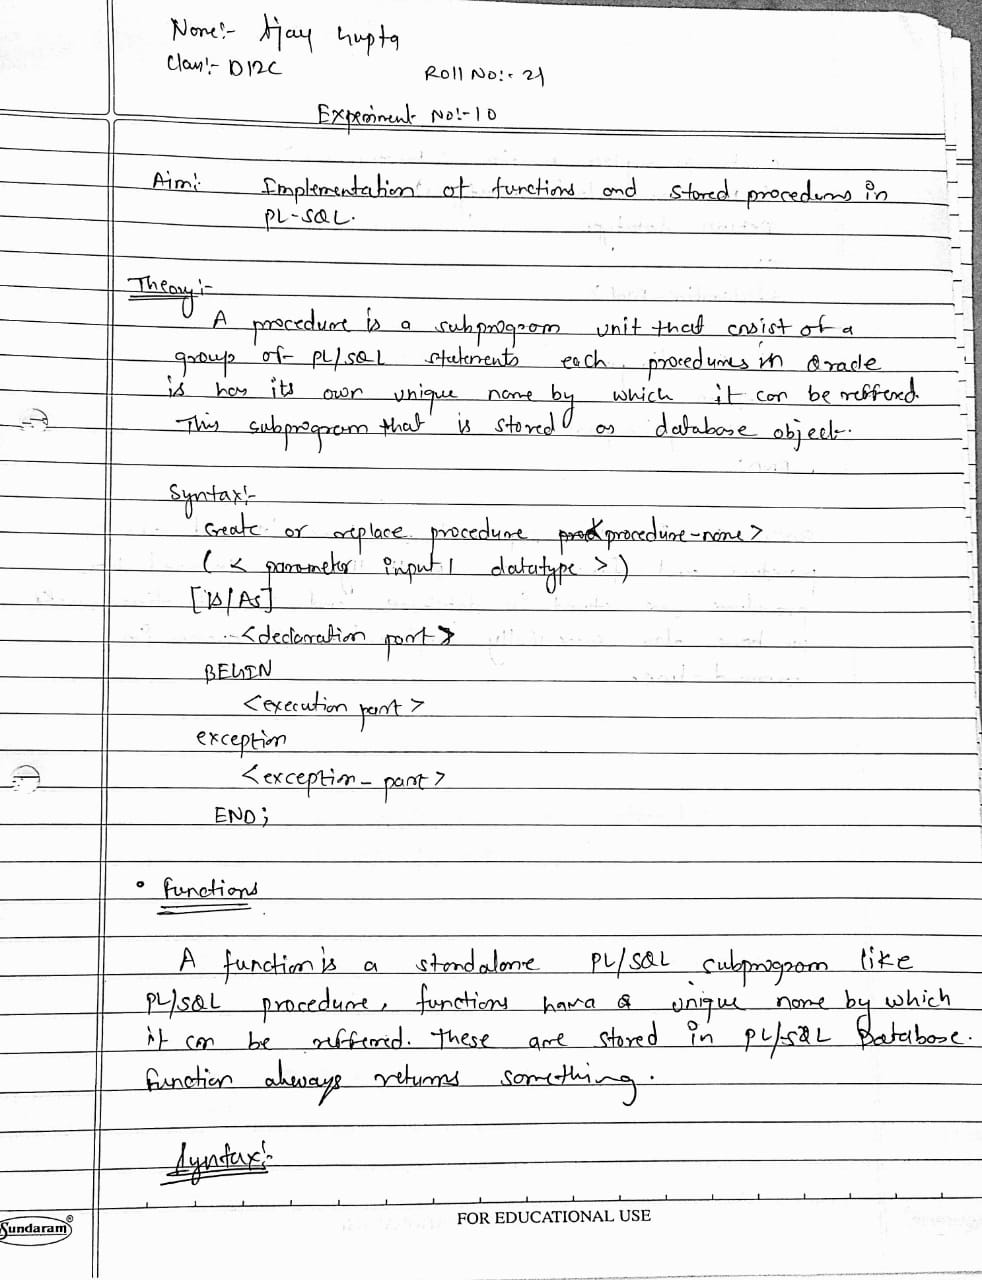 Name:- Ajay Gupta
Class:- D12C
Roll No:- 21
Experiment No:-10
Aim:- Implementation of functions and stored procedures in
PL-SQL.
Theory:-
A procedure is a subprogram unit that consist of a
group of PL/SQL statements each procedures in Oracle
is has its own unique name by which it can be reffered.
This subprogram that is stored as database object.
Syntax:-
Create or replace procedure <procedure-name>
( < parameter input1 datatype > )
[Is/As]
<declaration part>
BEGIN
<execution part>
exception
<exception-part>
END;
• functions
A function is a standalone PL/SQL subprogram like
PL/SQL procedure, functions hava a unique name by which
it can be reffered. These are stored in PL/SQL Database.
function always returns something.
Syntax:-
Sundaram®
FOR EDUCATIONAL USE